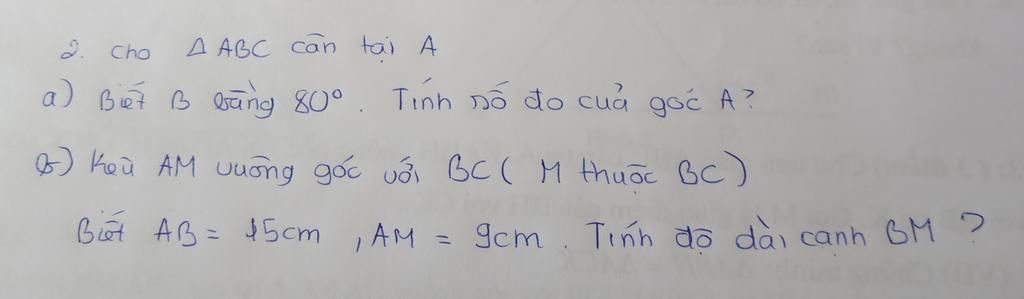 2. cho Δ ABC cân tại A
a) Biết B bằng 80°. Tính số đo của góc A?
b) Kẻ AM vuông góc với BC ( M thuộc BC )
Biết AB = 15cm , AM = 9cm . Tính độ dài cạnh BM ?